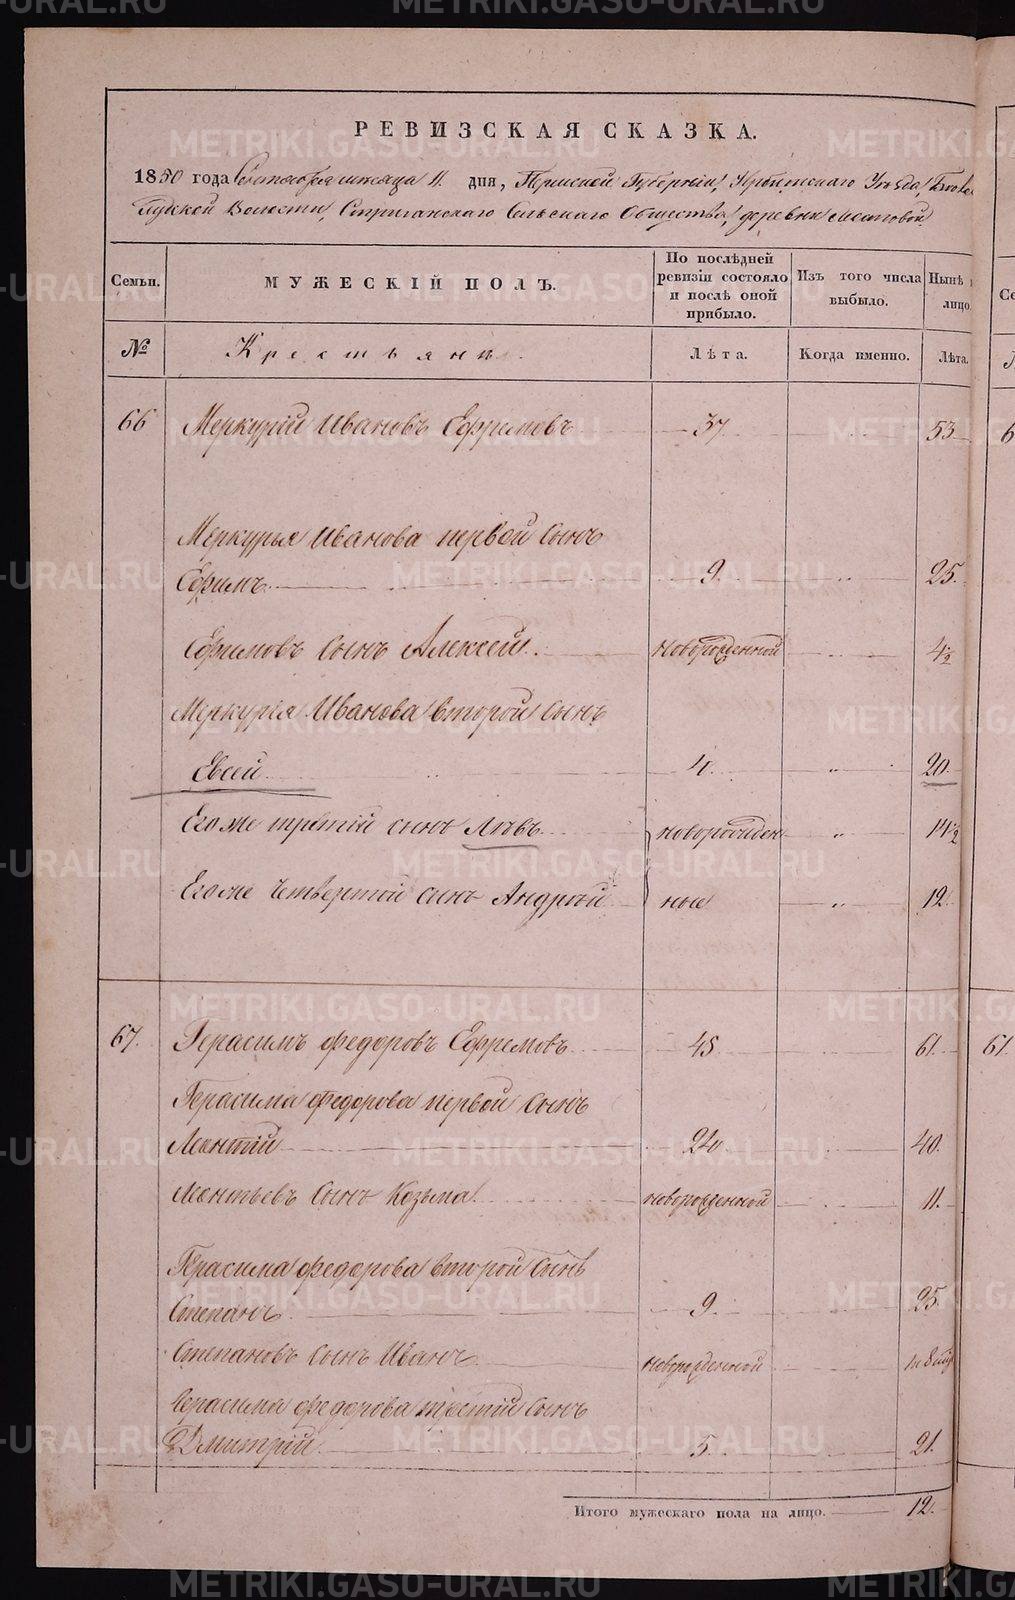 METRIKI.GASO-URAL.RU METRIKI.GASO-URAL.RU
РЕВИЗСКАЯ СКАЗКА.
1850 года Сентября месяца 11 дня, Пермской Губерніи, Ирбитскаго Уѣзда,
Волости, Стриганскаго Сельскаго Общества, деревни
Семьи.
МУЖЕСКІЙ ПОЛЪ.
По послѣдней ревизіи состояло и послѣ оной прибыло.
Изъ того числа выбыло.
Нынѣ
лицо.
№
Крестьяне.
Лѣта.
Когда именно.
Лѣта.
66 Меркурій Ивановъ Ефремовъ 37 53
Меркурья Иванова первой сынъ
Ефимъ 9. 25.
Ефимовъ сынъ Алексей новорожденной 4½
Меркурія Иванова второй сынъ
Евсей 4. 20.
Его же третій сынъ Левъ новорожден- 14½
Его же четвертой сынъ Андрей ные 12
67. Герасимъ Федоровъ Ефремовъ 45 61. 61
Герасима Федорова первой сынъ
Леонтій 24. 40.
Леонтьевъ сынъ Козьма новорожденной 11.
Герасима Федорова второй сынъ
Степанъ 9. 25.
Степановъ сынъ Иванъ новорожденной
Герасима Федорова третій сынъ
Дмитрій 5. 21.
Итого мужескаго пола на лицо. 12.
METRIKI.GASO-URAL.RU